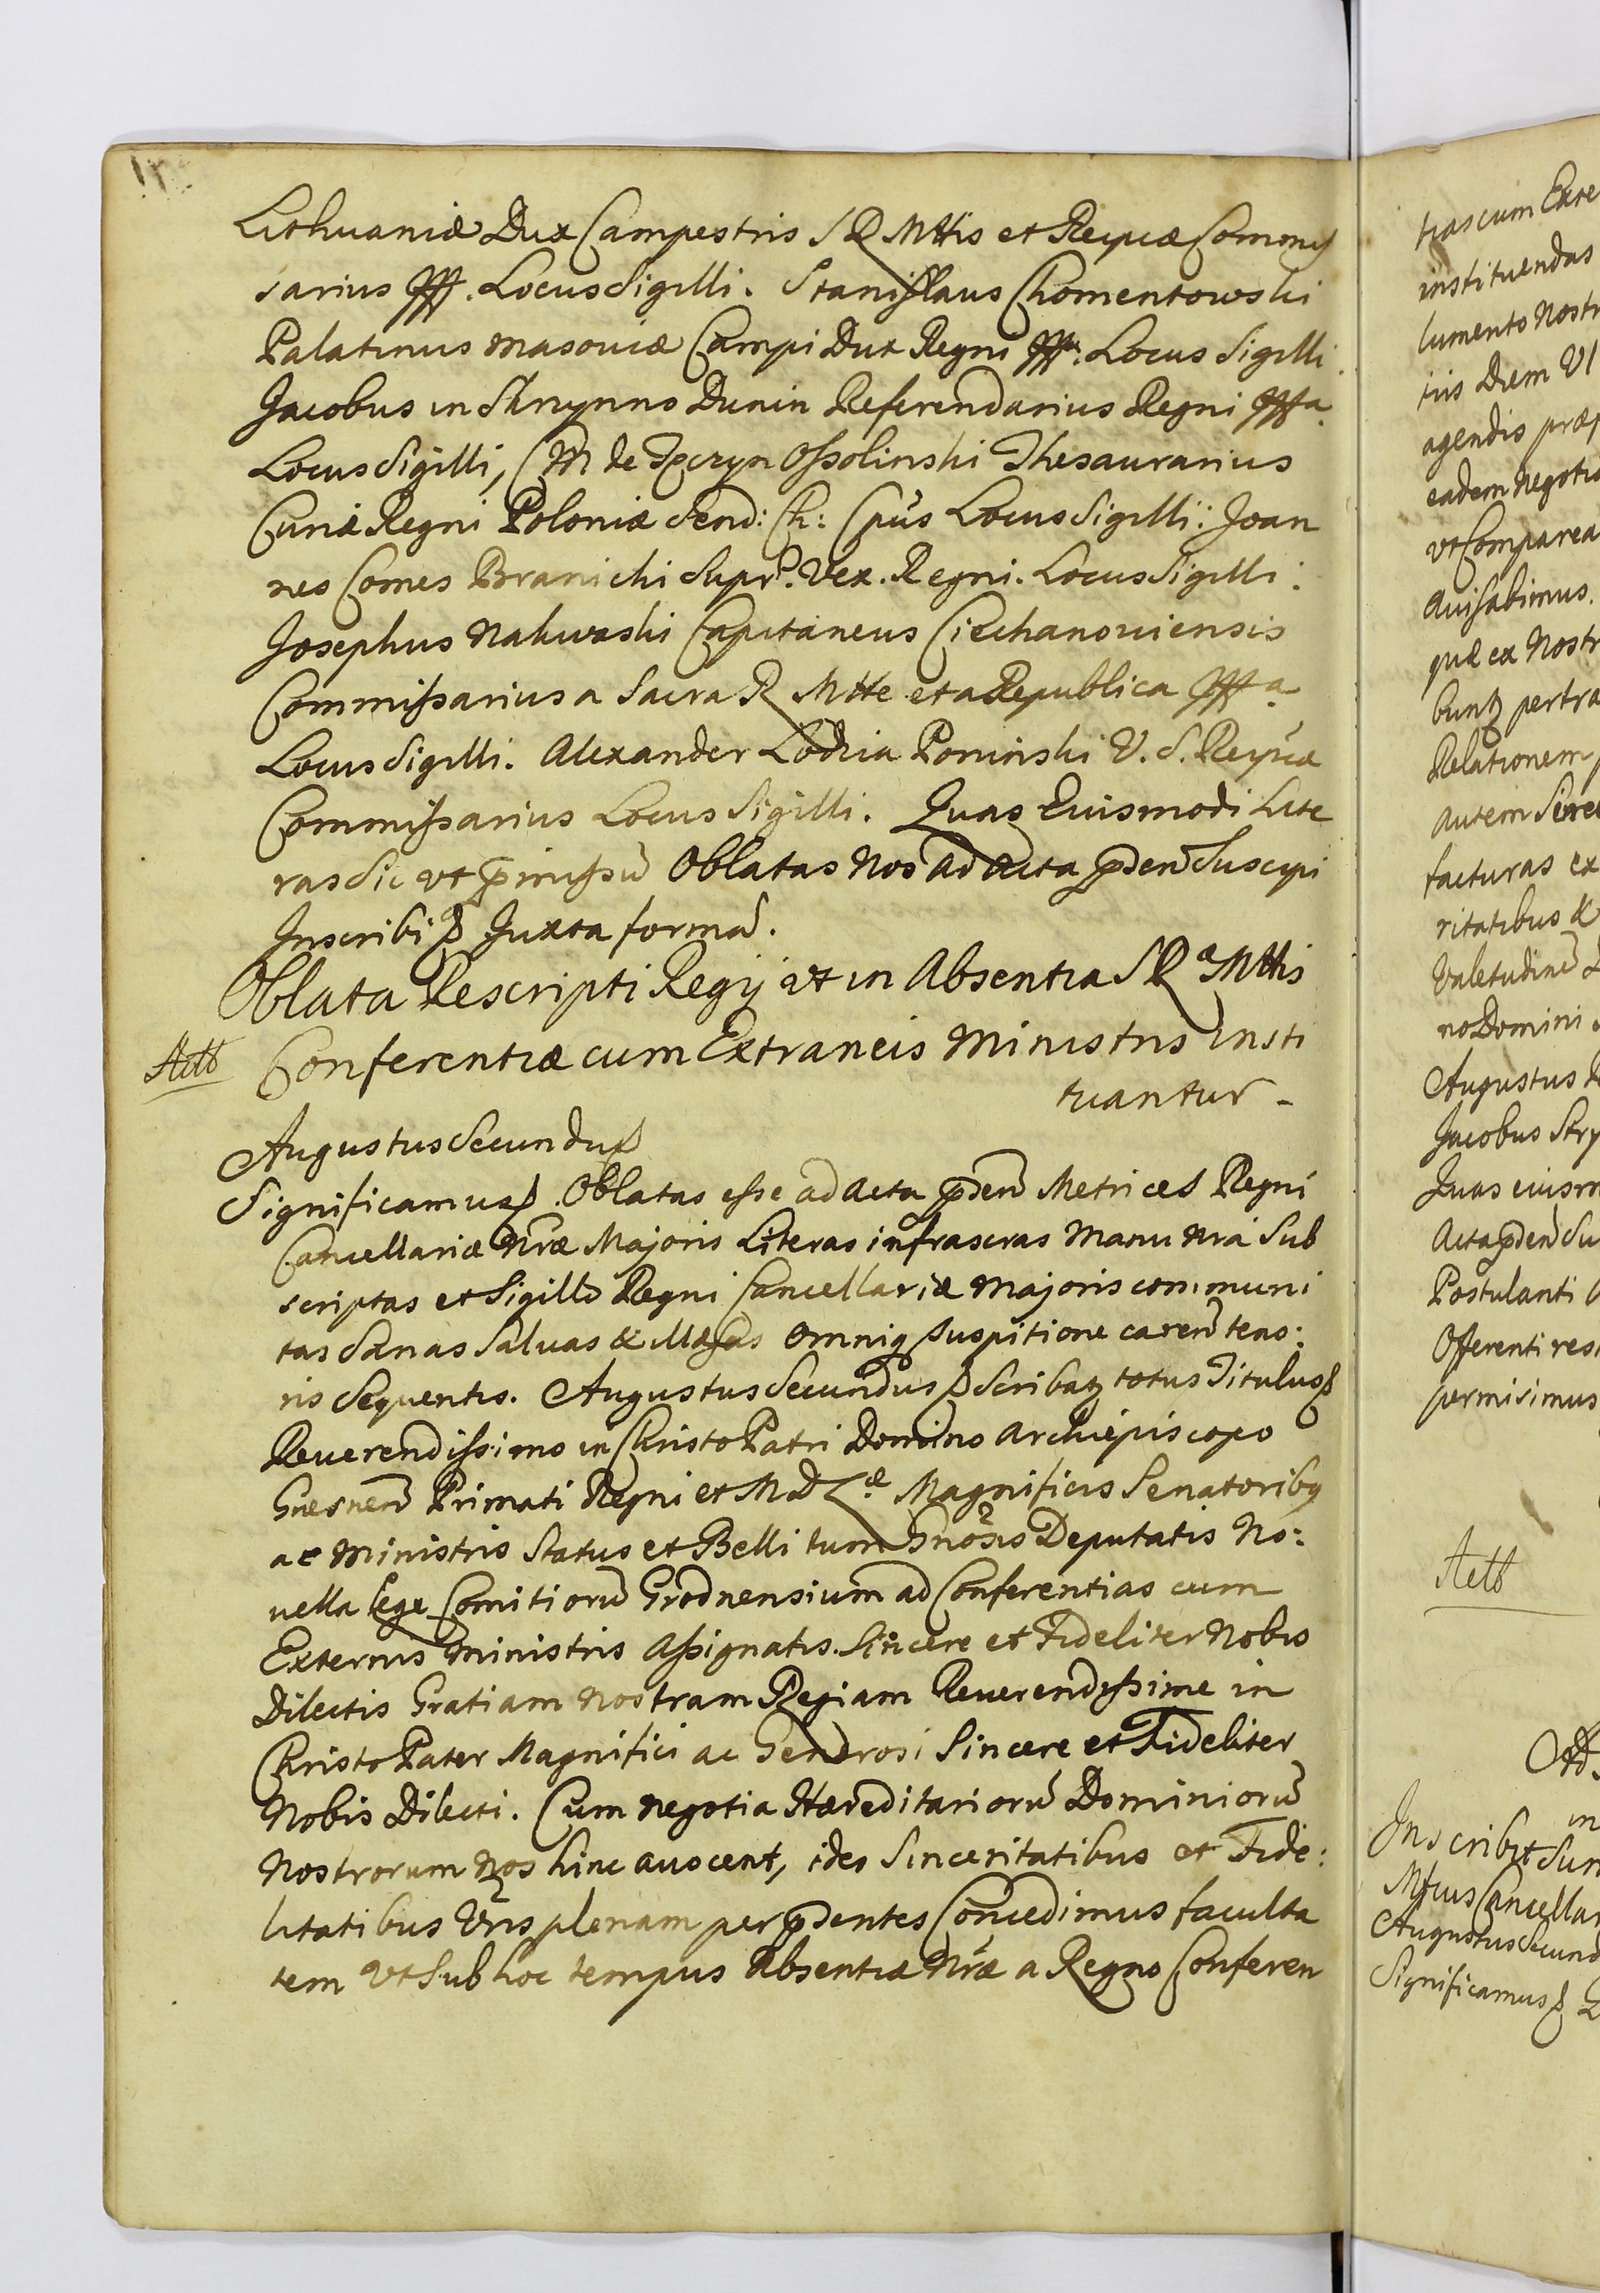 Lithuaniæ Dux Campestris S R Mttis et Reipcæ Commis
sarius. Locus Sigilli. Stanislaus Chomentowski
Palatinus Masoviæ Campi Dux Regni. Locus Sigilli.
Jacobus in Skrzynno Dunin Referendarius Regni
Locus Sigilli, de Tęczyn Ossolinski Thesaurarius
Curiæ Regni Poloniæ Send: Ch: Cpūs Locus Sigilli: Joan
nes Comes Branicki Supr. Vex. Regni. Locus Sigilli.
Josephus Nakwaski Capitaneus Ciechanoviensis
Commissarius a Sacra R Mtte et a Republica
Locus Sigilli. Alexander Lodzia Poninski V. S. Reipcæ
Commissarius Locus Sigilli. Quas Euismodi Lite
ras Sic vt p̄missū Oblatas Nos ad Acta p̄den̄ Suscipi
Inscribi Juxta formā.
Oblata Rescripti Regij vt in Absentia S R Mttis
Actb Conferentiæ cum Extraneis Ministris insti
tuantur -
Augustus Secundus
Significamus. Oblatas esse ad Acta p̄den̄ Metrices Regni
Cancellariæ Nr̄æ Majoris Literas infrascras Manu Nrā Sub
scriptas et Sigillo Regni Cancellariæ Majoris communi
tas Sanas Saluas & illæsas omniq suspitione caren̄ teno:
ris Sequentis. Augustus Secundus Scribatz totus Titulus
Reuerendissimo in Christo Patri Domino Archiepiscopo
Gnesnen̄ Primati Regni et M D L.æ Magnificis Senatoribq
ac Ministris Status et Belli tum Gnōsis Deputatis No:
uella lege Comitiorū Grodnensium ad Conferentias cum
Externis Ministris Assignatis. Sincere et Fideliter Nobis
Dilectis Gratiam Nostram Regiam Reuerendissime in
Christo Pater Magnifici ac Generosi Sincere et Fideliter
Nobis Dilecti. Cum negotia Hæreditariorū Dominiorū
Nostrorum Nos hinc auocent, ideo Sinceritatibus et Fide:
litatibus Vr̄is plenam per p̄dentes Concedimus faculta
tem vt Sub hoc tempus Absentiæ Nr̄æ a Regno Conferen
trascum Exte
instituendas
lumento Nostr
tris Diem Vl
agendis præp
eadem Negotia
vt Comparea
auisabimus.
quæ ex Nostr
buntz pertra
Relationem
autem Since
facturas ex
ritatibus &
Valetudinē
no Domini
Augustus R
Jacobus Skrz
Quas euism
Acta p̄den̄ Su
Postulanti
Offerenti resi
permisimus
Actb
in
Inscribit Sum
Mfcus Cancellar
Augustus Secund
Significamus